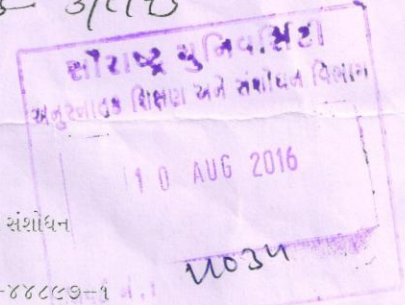 સૌરાષ્ટ્ર યુનિવર્સિટી
અનુસ્નાતક શિક્ષણ અને સંશોધન વિભાગ
10 AUG 2016
સંશોધન
-૪૪૮૯૭-૧